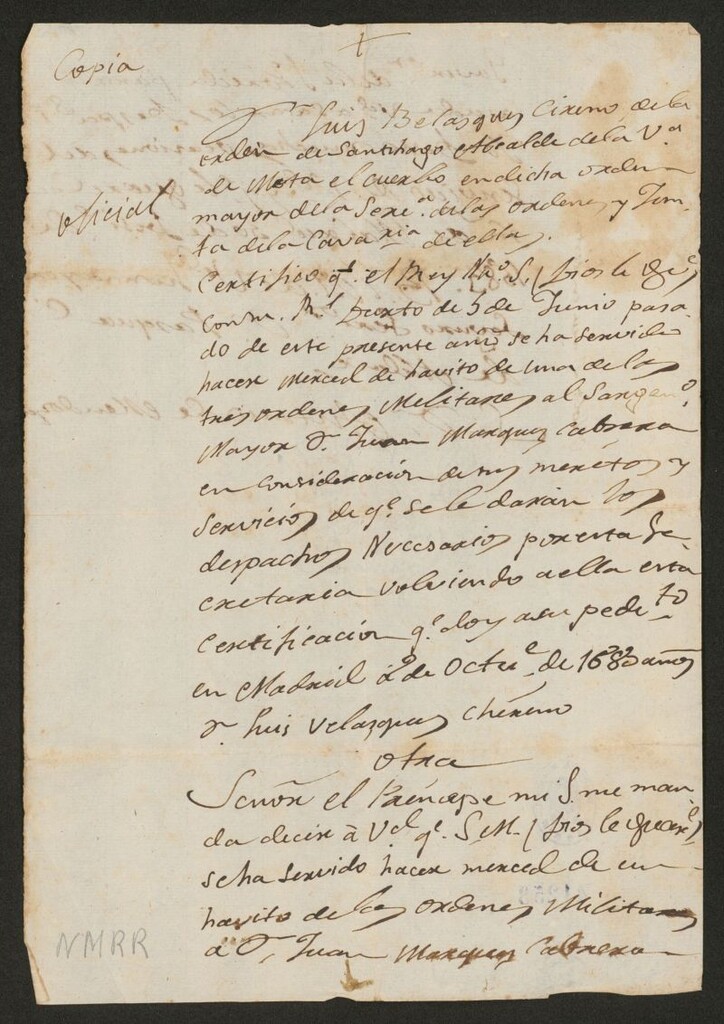 Copia
oficial
Dn Luis Belasques Cireno de la
orden de Santhiago Alcalde de la Va
de Mota el cuerbo en dicha orden
mayor de la Srea. de las ordenes y Jun-
ta de la Cavaria de ellas.
Certifico qe. el Rey Nro. S. (Dios le Gue)
con su Rl. Decreto de 5 de Junio pasa-
do de este presente año se ha servido
hacer merced de havito de una de las
tres ordenes Militares al Sargento.
Mayor Dn. Juan Marquez Cabrera
en consideración de sus meritos y
servicios de qe. se le darán los
despachos Necesarios por esta Se-
cretaria volviendo a ella esta
Certificación qe. doy a su pedito
en Madrid a 2 de Octue. de 1680 años
Dn. Luis Velazques Chereno
otra
Señor el Principe mi S. me man-
da decir à Vd qe. S.M. (Dios le Guare)
se ha servido hacer merced de un
havito de las ordenes Militares
a Dn. Juan Marquez Cabrera
NMRR